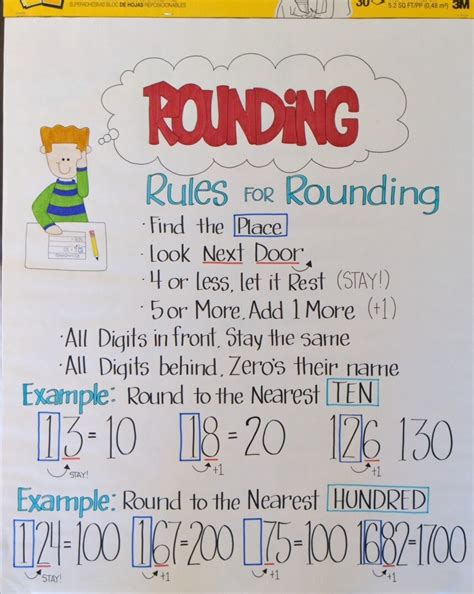 SUPERADHESIVAS BLOC DE HOJAS REPOSICIONABLES
30
5.2 SQ FT/PP (0,48 m²)
3M
ROUNDING
Rules for Rounding
· Find the Place
· Look Next Door
· 4 or Less, let it Rest (STAY!)
· 5 or More, Add 1 More (+1)
· All Digits in front, Stay the same
· All Digits behind, Zero's their name
Example: Round to the Nearest TEN
13=10 18=20 126 130
STAY! +1 +1
Example: Round to the Nearest HUNDRED
124=100 167=200 75=100 1682=1700
STAY! +1 +1 +1